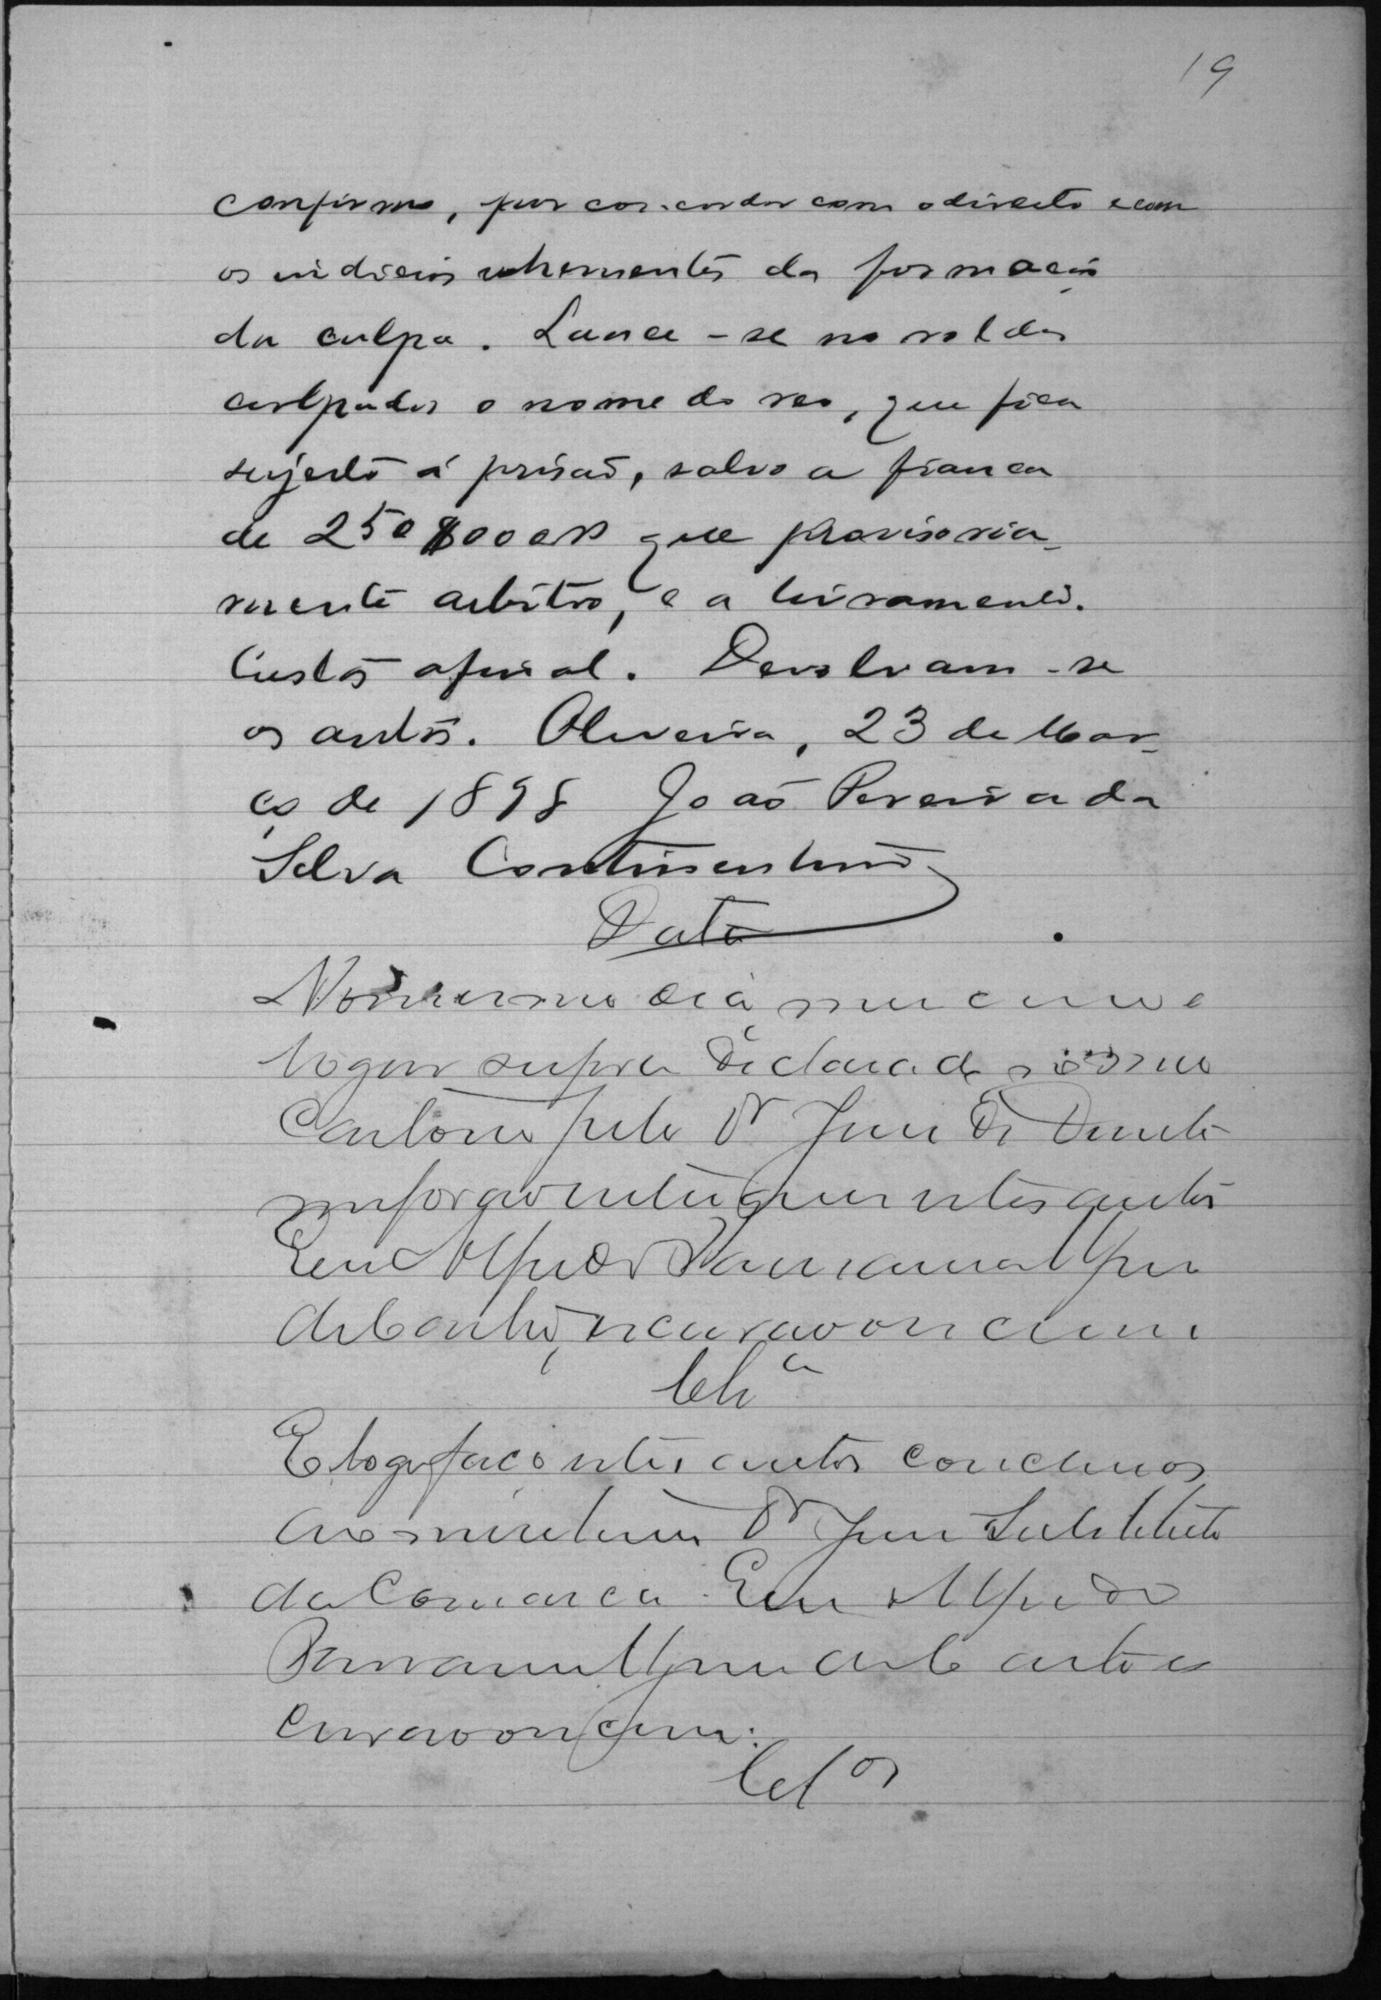 19
confirmo, por concordar com o direito e com
os indicios vehementes da formação
da culpa. Lance-se no rol dos
culpados o nome do reo, que fica
sujeito á prisão, salvo a fiança
de 250$000rs que provisoria-
mente arbitro, e a livramento.
Custas afinal. Devolvam-se
os autos. Oliveira, 23 de Mar-
ço de 1898 João Pereira da
Silva Continentino
Data
No mesmo dia, mez e anno e
logar supra declarado, em meo
Cartorio pelo Dr Juiz de Direito
me forão entregues estes autos
Eu Alfredo
escrivão
Clsa
E logo faço estes autos conclusos
ao meretissimo Dr Juiz Substituto
da Comarca. Eu Alfredo
escrivão
Clsos